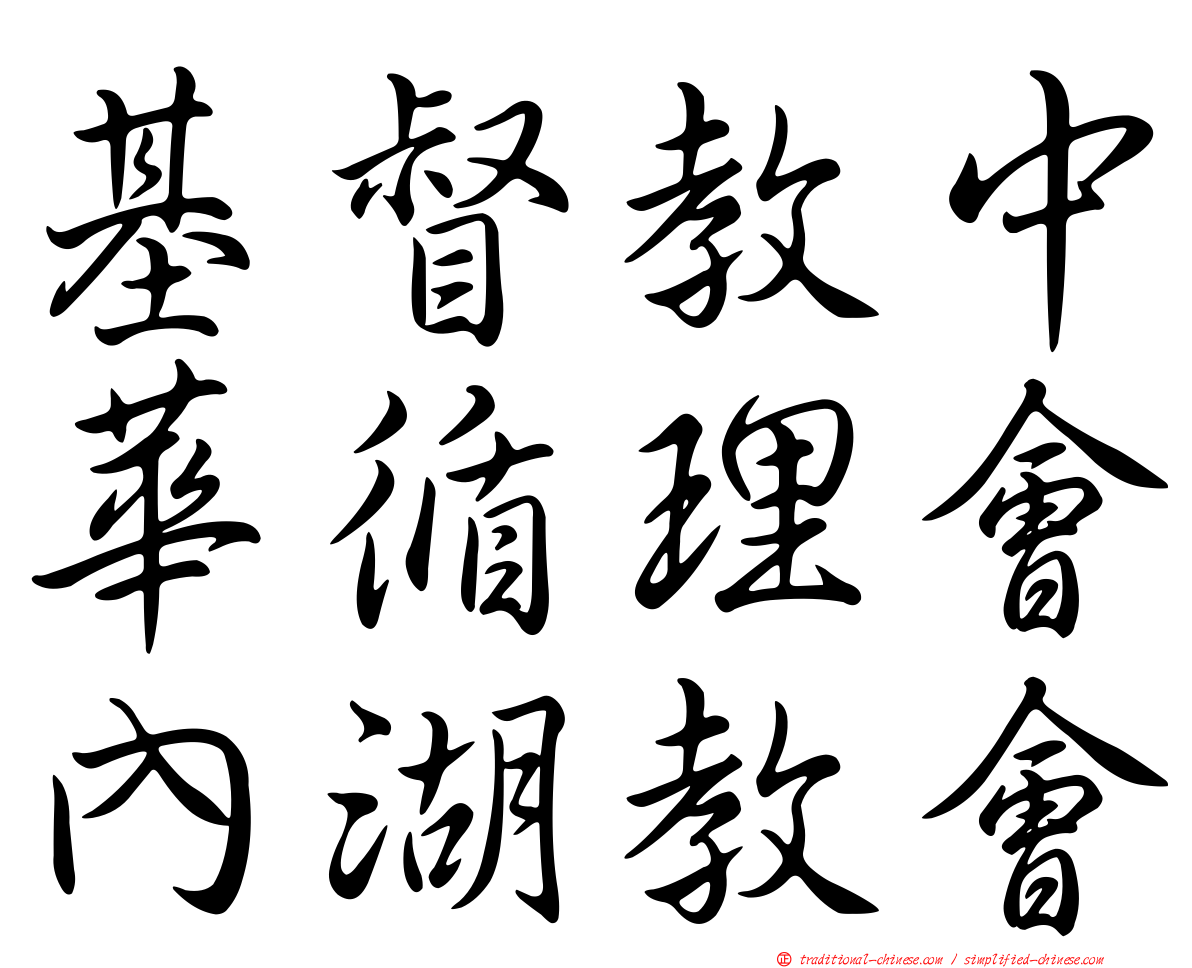 基督教中
華循理會
內湖教會
正 traditional-chinese.com / simplified-chinese.com